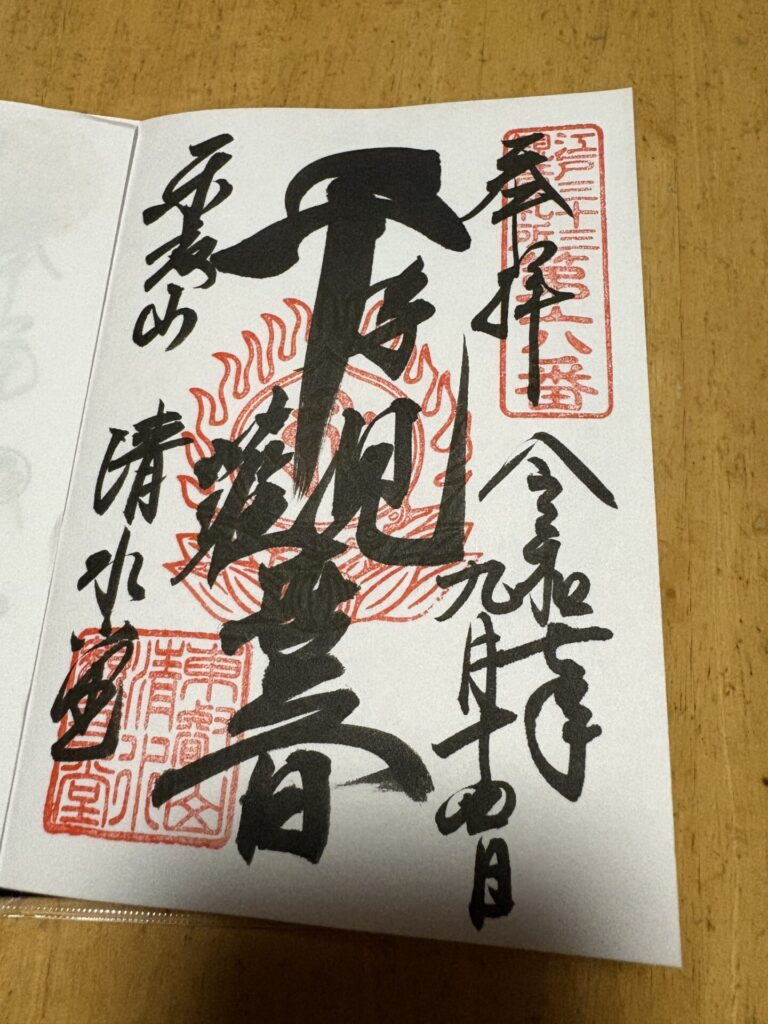 奉拝
江戸三十三
観音札所
第六番
令和七年
九月十四日
千手觀世音
東叡山
清水堂
東叡山
清水
觀音堂